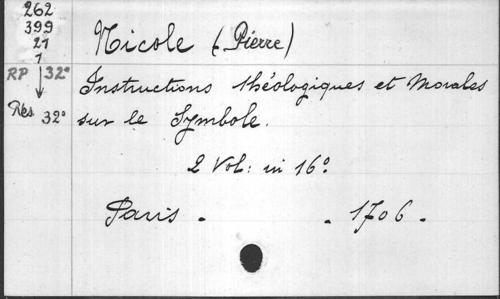 262
399
21
1
RP 32°
Rés 32°
Nicole (Pierre)
Instructions théologiques et Morales
sur le Symbole.
2 Vol: in 16°
Paris . . 1706.